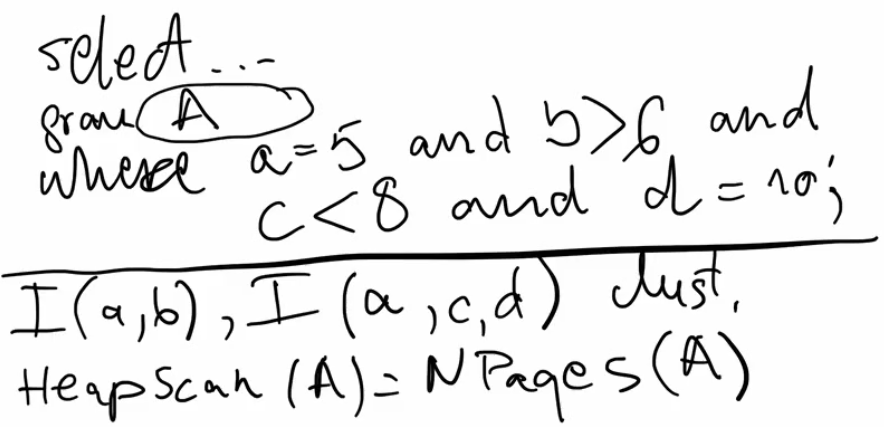 select...
from A
where a=5 and b>6 and
c<8 and d=10;
I(a,b), I(a,c,d) clust.
HeapScan(A)=NPages(A)